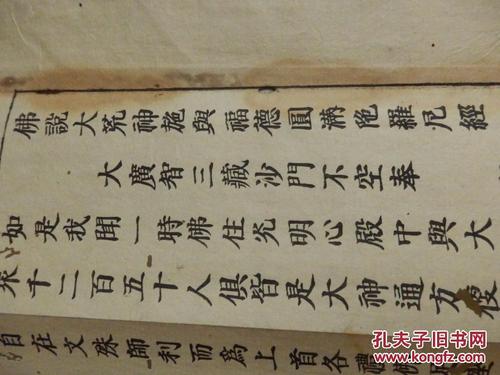 佛說大荒神施與福德圓滿陀羅尼經
大廣智三藏沙門不空奉
如是我聞一時佛住光明心殿中與大
衆千二百五十人俱皆是大神通方便
自在文殊師利而爲上首各禮佛
孔夫子旧书网
KONGFZ.COM